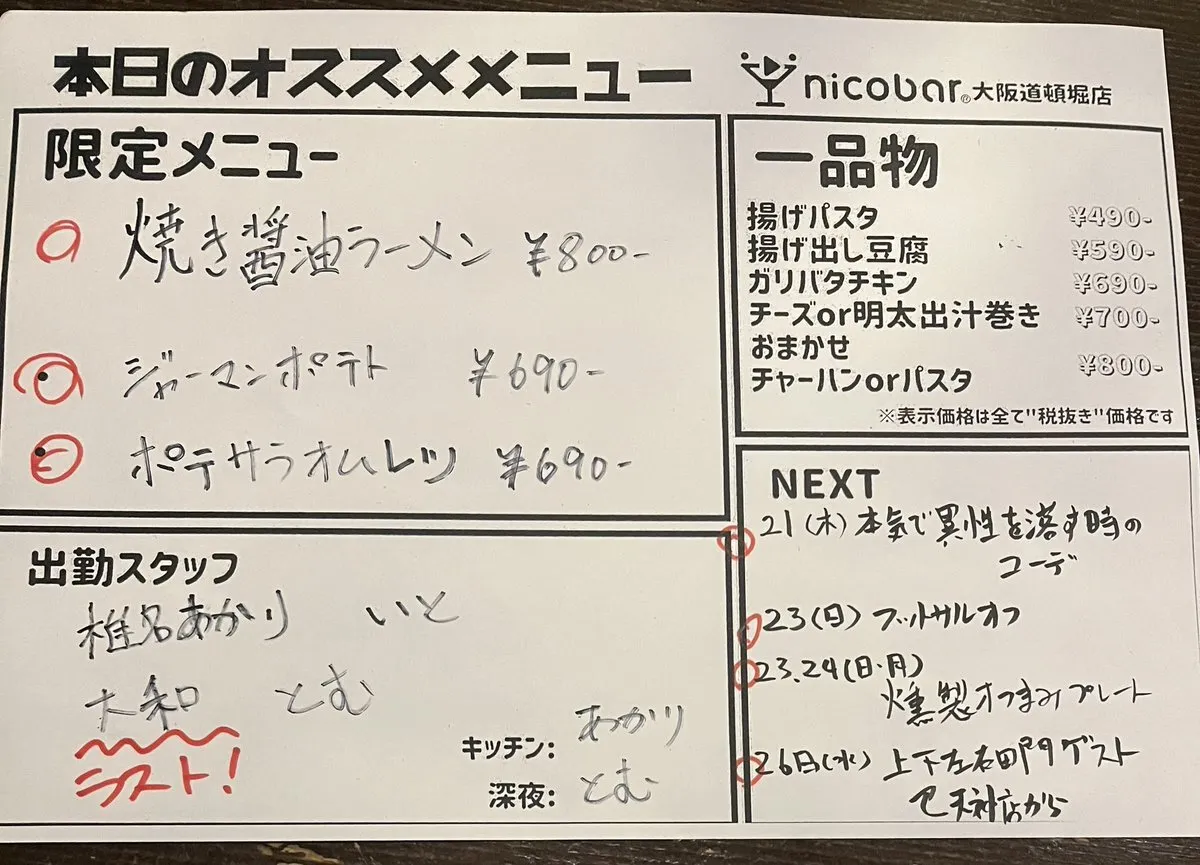 本日のオススメメニュー
nicobar® 大阪道頓堀店
限定メニュー
焼き醤油ラーメン ¥800-
ジャーマンポテト ¥690-
ポテサラオムレツ ¥690-
一品物
揚げパスタ ¥490-
揚げ出し豆腐 ¥590-
ガリバタチキン ¥690-
チーズor明太出汁巻き ¥700-
おまかせ
チャーハンorパスタ ¥800-
※表示価格は全て"税抜き"価格です
出勤スタッフ
椎名あかり いと
大和 とむ
ラスト!
キッチン: あかり
深夜: とむ
NEXT
21(木)本気で異性を落す時の
コーデ
23(日) フットサルオフ
23.24(日・月)
燻製オつまみプレート
26日(水) 上下左右田門ゲスト
天神店から